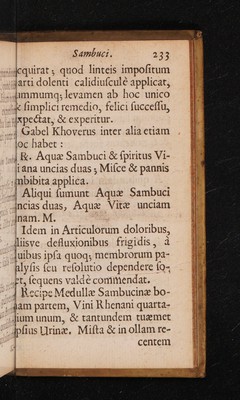 Sambuci. 233
cquirat; quod linteis impositum
arti dolenti calidiusculè applicat,
ummumq; levamen ab hoc unico
& simplici remedio, felici successu,
xpectat, & experitur.
Gabel Khoverus inter alia etiam
oc habet:
℞. Aquæ Sambuci & spiritus Vi-
i ana uncias duas; Misce & pannis
mbibita applica.
Aliqui sumunt Aquæ Sambuci
ncias duas, Aquæ Vitæ unciam
nam. M.
Idem in Articulorum doloribus,
liisve defluxionibus frigidis, à
uibus ipsa quoq; membrorum pa-
alysis seu resolutio dependere so-
et, sequens valdè commendat.
Recipe Medullæ Sambucinæ bo-
am partem, Vini Rhenani quarta-
ium unum, & tantundem tuæmet
psius Urinæ. Mista & in ollam re-
centem